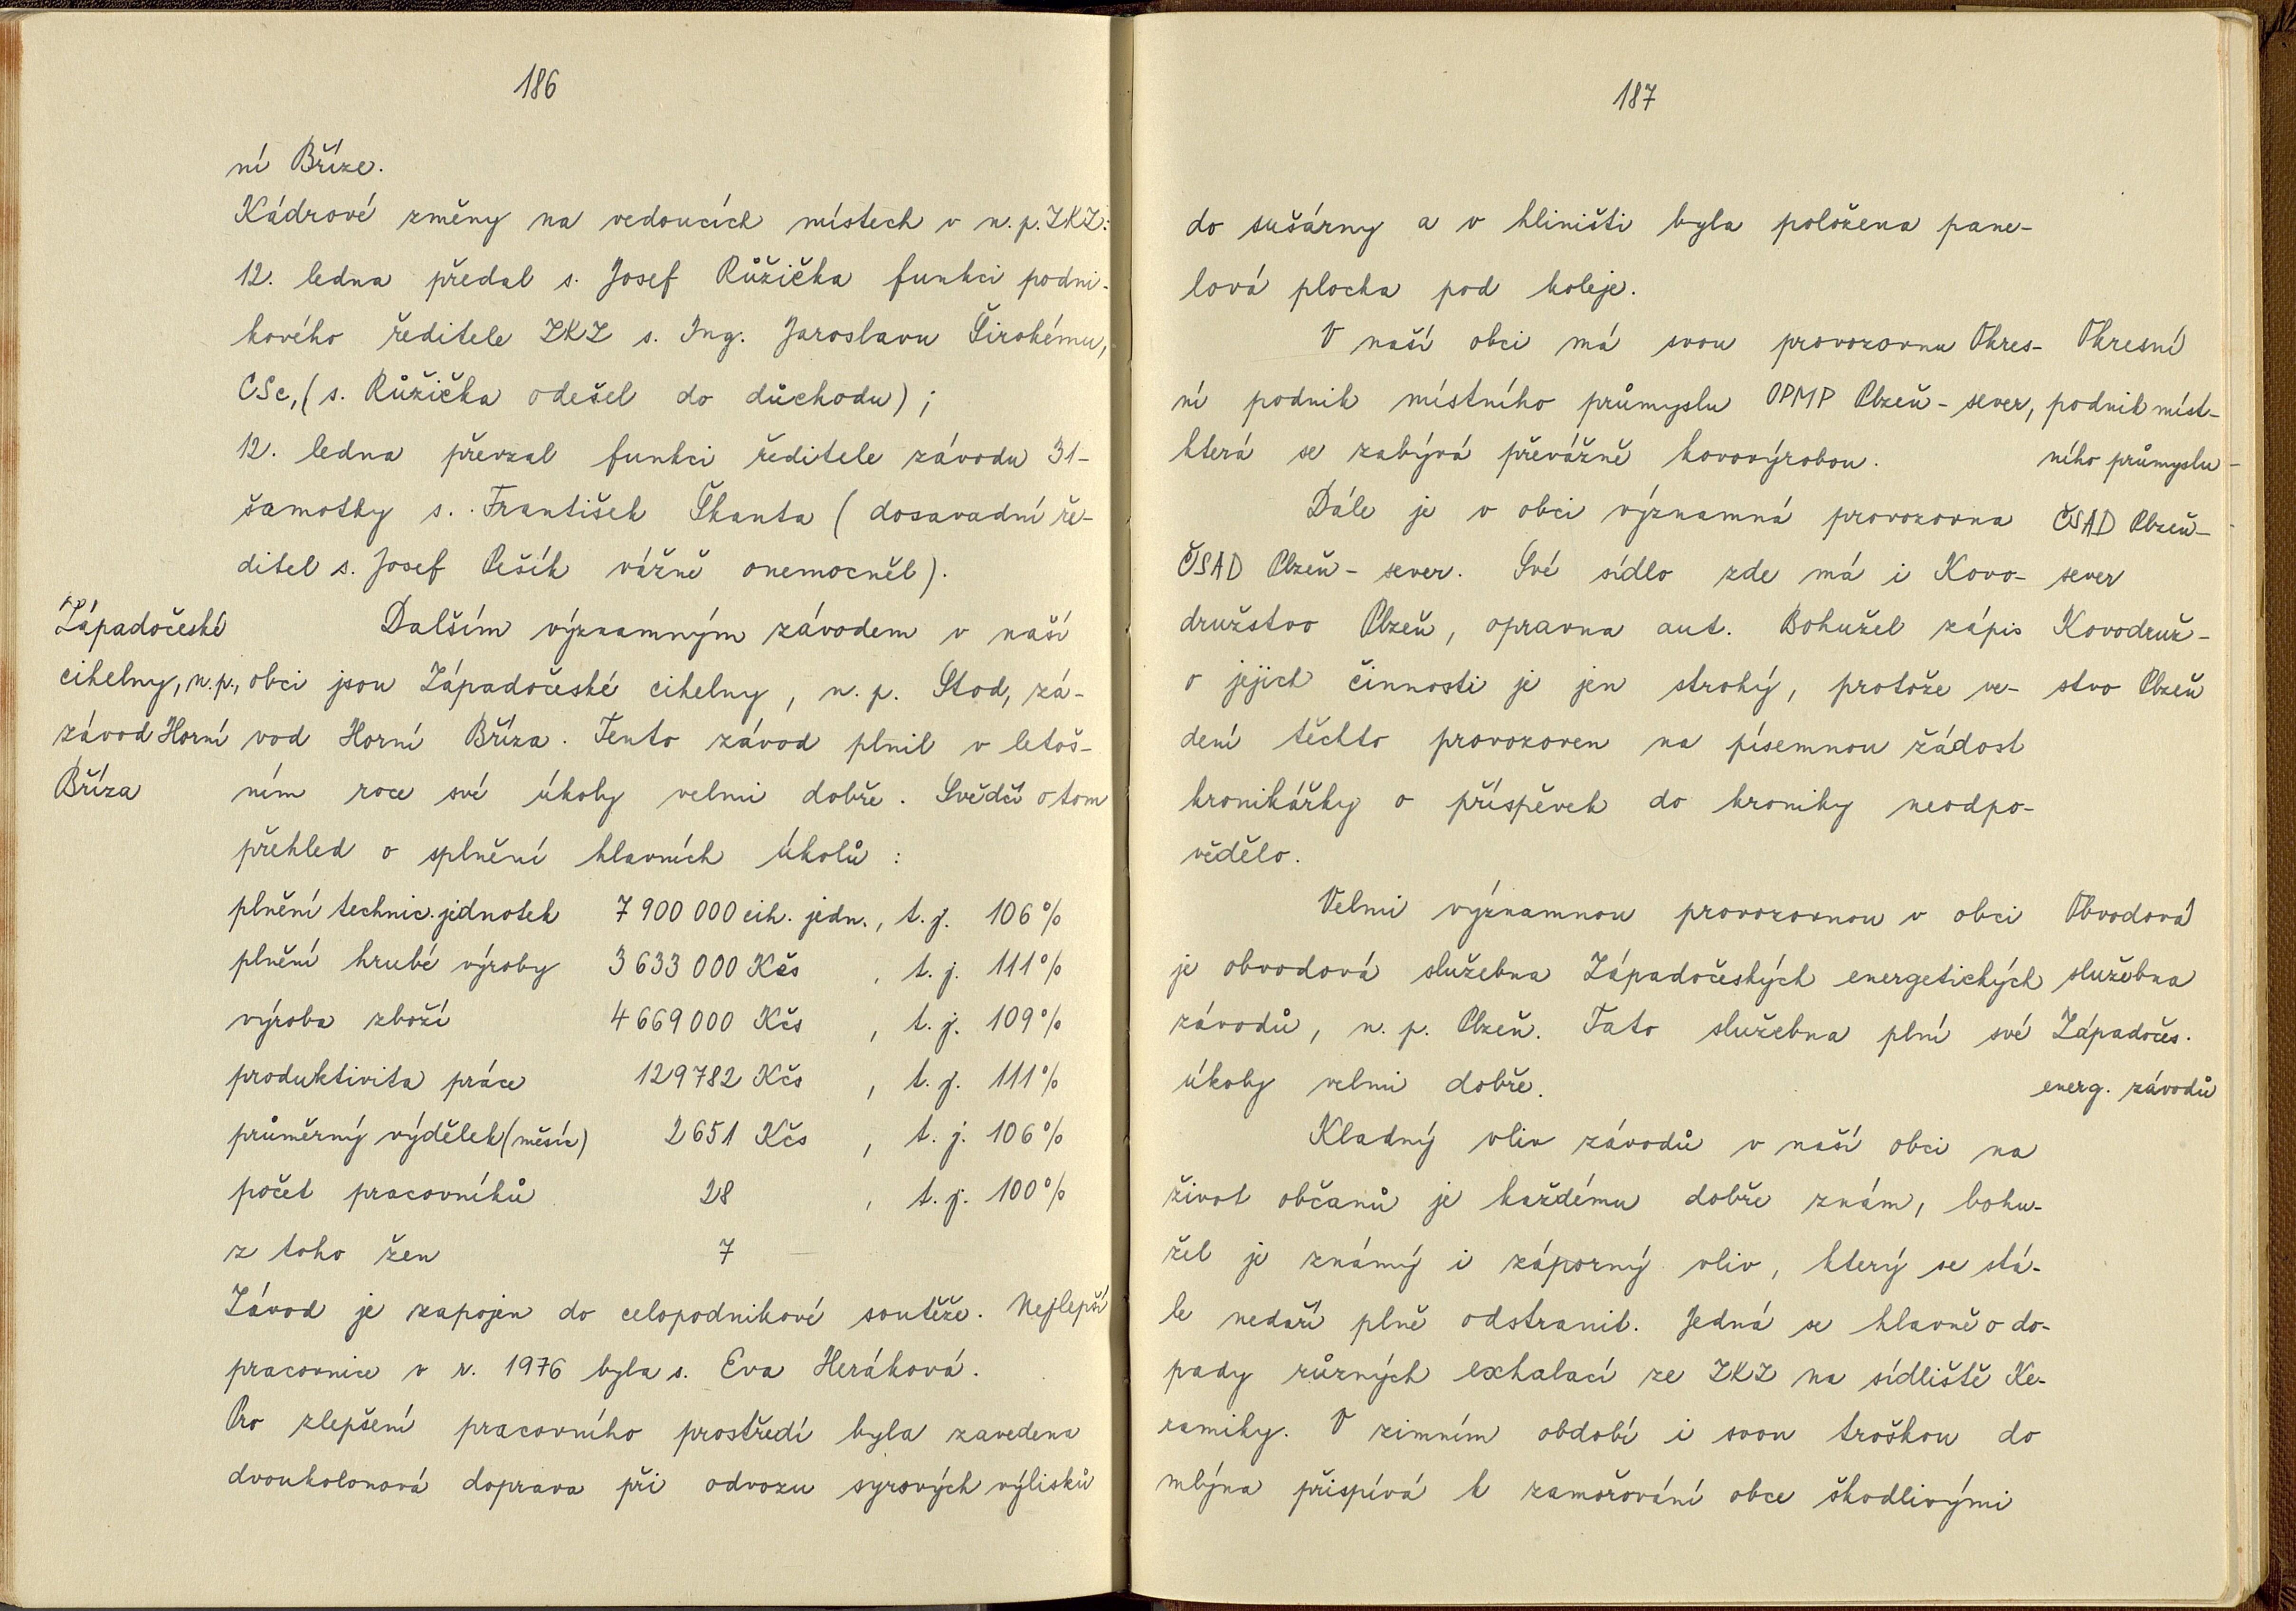 186
ní Bříze.
Kádrové změny na vedoucích místech v n. p. ZKZ:
12. ledna předal s. Josef Růžička funkci podni-
kového ředitele ZKZ s. Ing. Jaroslavu Širokému,
CSc, (s. Růžička odešel do důchodu) ;
12. ledna převzal funkci ředitele závodu 31-
šamotky s. František Škanta (dosavadní ře-
ditel s. Josef Pešík vážně onemocněl).
Západočeské
cihelny, n.p.,
závod Horní
Bříza
Dalším významným závodem v naší
obci jsou Západočeské cihelny, n. p. Stod, zá-
vod Horní Bříza. Tento závod plnil v letoš-
ním roce své úkoly velmi dobře. Svědčí o tom
přehled o splnění hlavních úkolů :
plnění technic. jednotek 7 900 000 cih. jedn., t. j. 106 %
plnění hrubé výroby 3 633 000 Kčs , t. j. 111 %
výroba zboží 4 669 000 Kčs , t. j. 109 %
produktivita práce 129 782 Kčs , t. j. 111 %
průměrný výdělek (měsíc) 2 651 Kčs , t. j. 106 %
počet pracovníků 28 , t. j. 100 %
z toho žen 7
Závod je zapojen do celopodnikové soutěže. Nejlepší
pracovnice v r. 1976 byla s. Eva Heráková.
Pro zlepšení pracovního prostředí byla zavedena
dvoukolonová doprava při odvozu syrových výlisků
187
do sušárny a v hliništi byla položena pane-
lová plocha pod koleje.
V naší obci má svou provozovnu Okres-
ní podnik místního průmyslu OPMP Plzeň - sever,
která se zabývá převážně kovovýrobou.
Okresní
podnik míst-
ního průmyslu -
Dále je v obci významná provozovna
ČSAD Plzeň - sever. Své sídlo zde má i Kovo-
družstvo Plzeň, opravna aut. Bohužel zápis
o jejich činnosti je jen strohý, protože ve-
dení těchto provozoven na písemnou žádost
kronikářky o příspěvek do kroniky neodpo-
vědělo.
ČSAD Plzeň-
sever
Kovodruž-
stvo Plzeň
Velmi významnou provozovnou v obci
je obvodová služebna Západočeských energetických
závodů, n. p. Plzeň. Tato služebna plní své
úkoly velmi dobře.
Obvodová
služebna
Západočes.
energ. závodů
Kladný vliv závodů v naší obci na
život občanů je každému dobře znám, bohu-
žel je známý i záporný vliv, který se stá-
le nedaří plně odstranit. Jedná se hlavně o do-
pady různých exhalací ze ZKZ na sídliště Ke-
ramiky. V zimním období i svou troškou do
mlýna přispívá k zamořování obce škodlivými